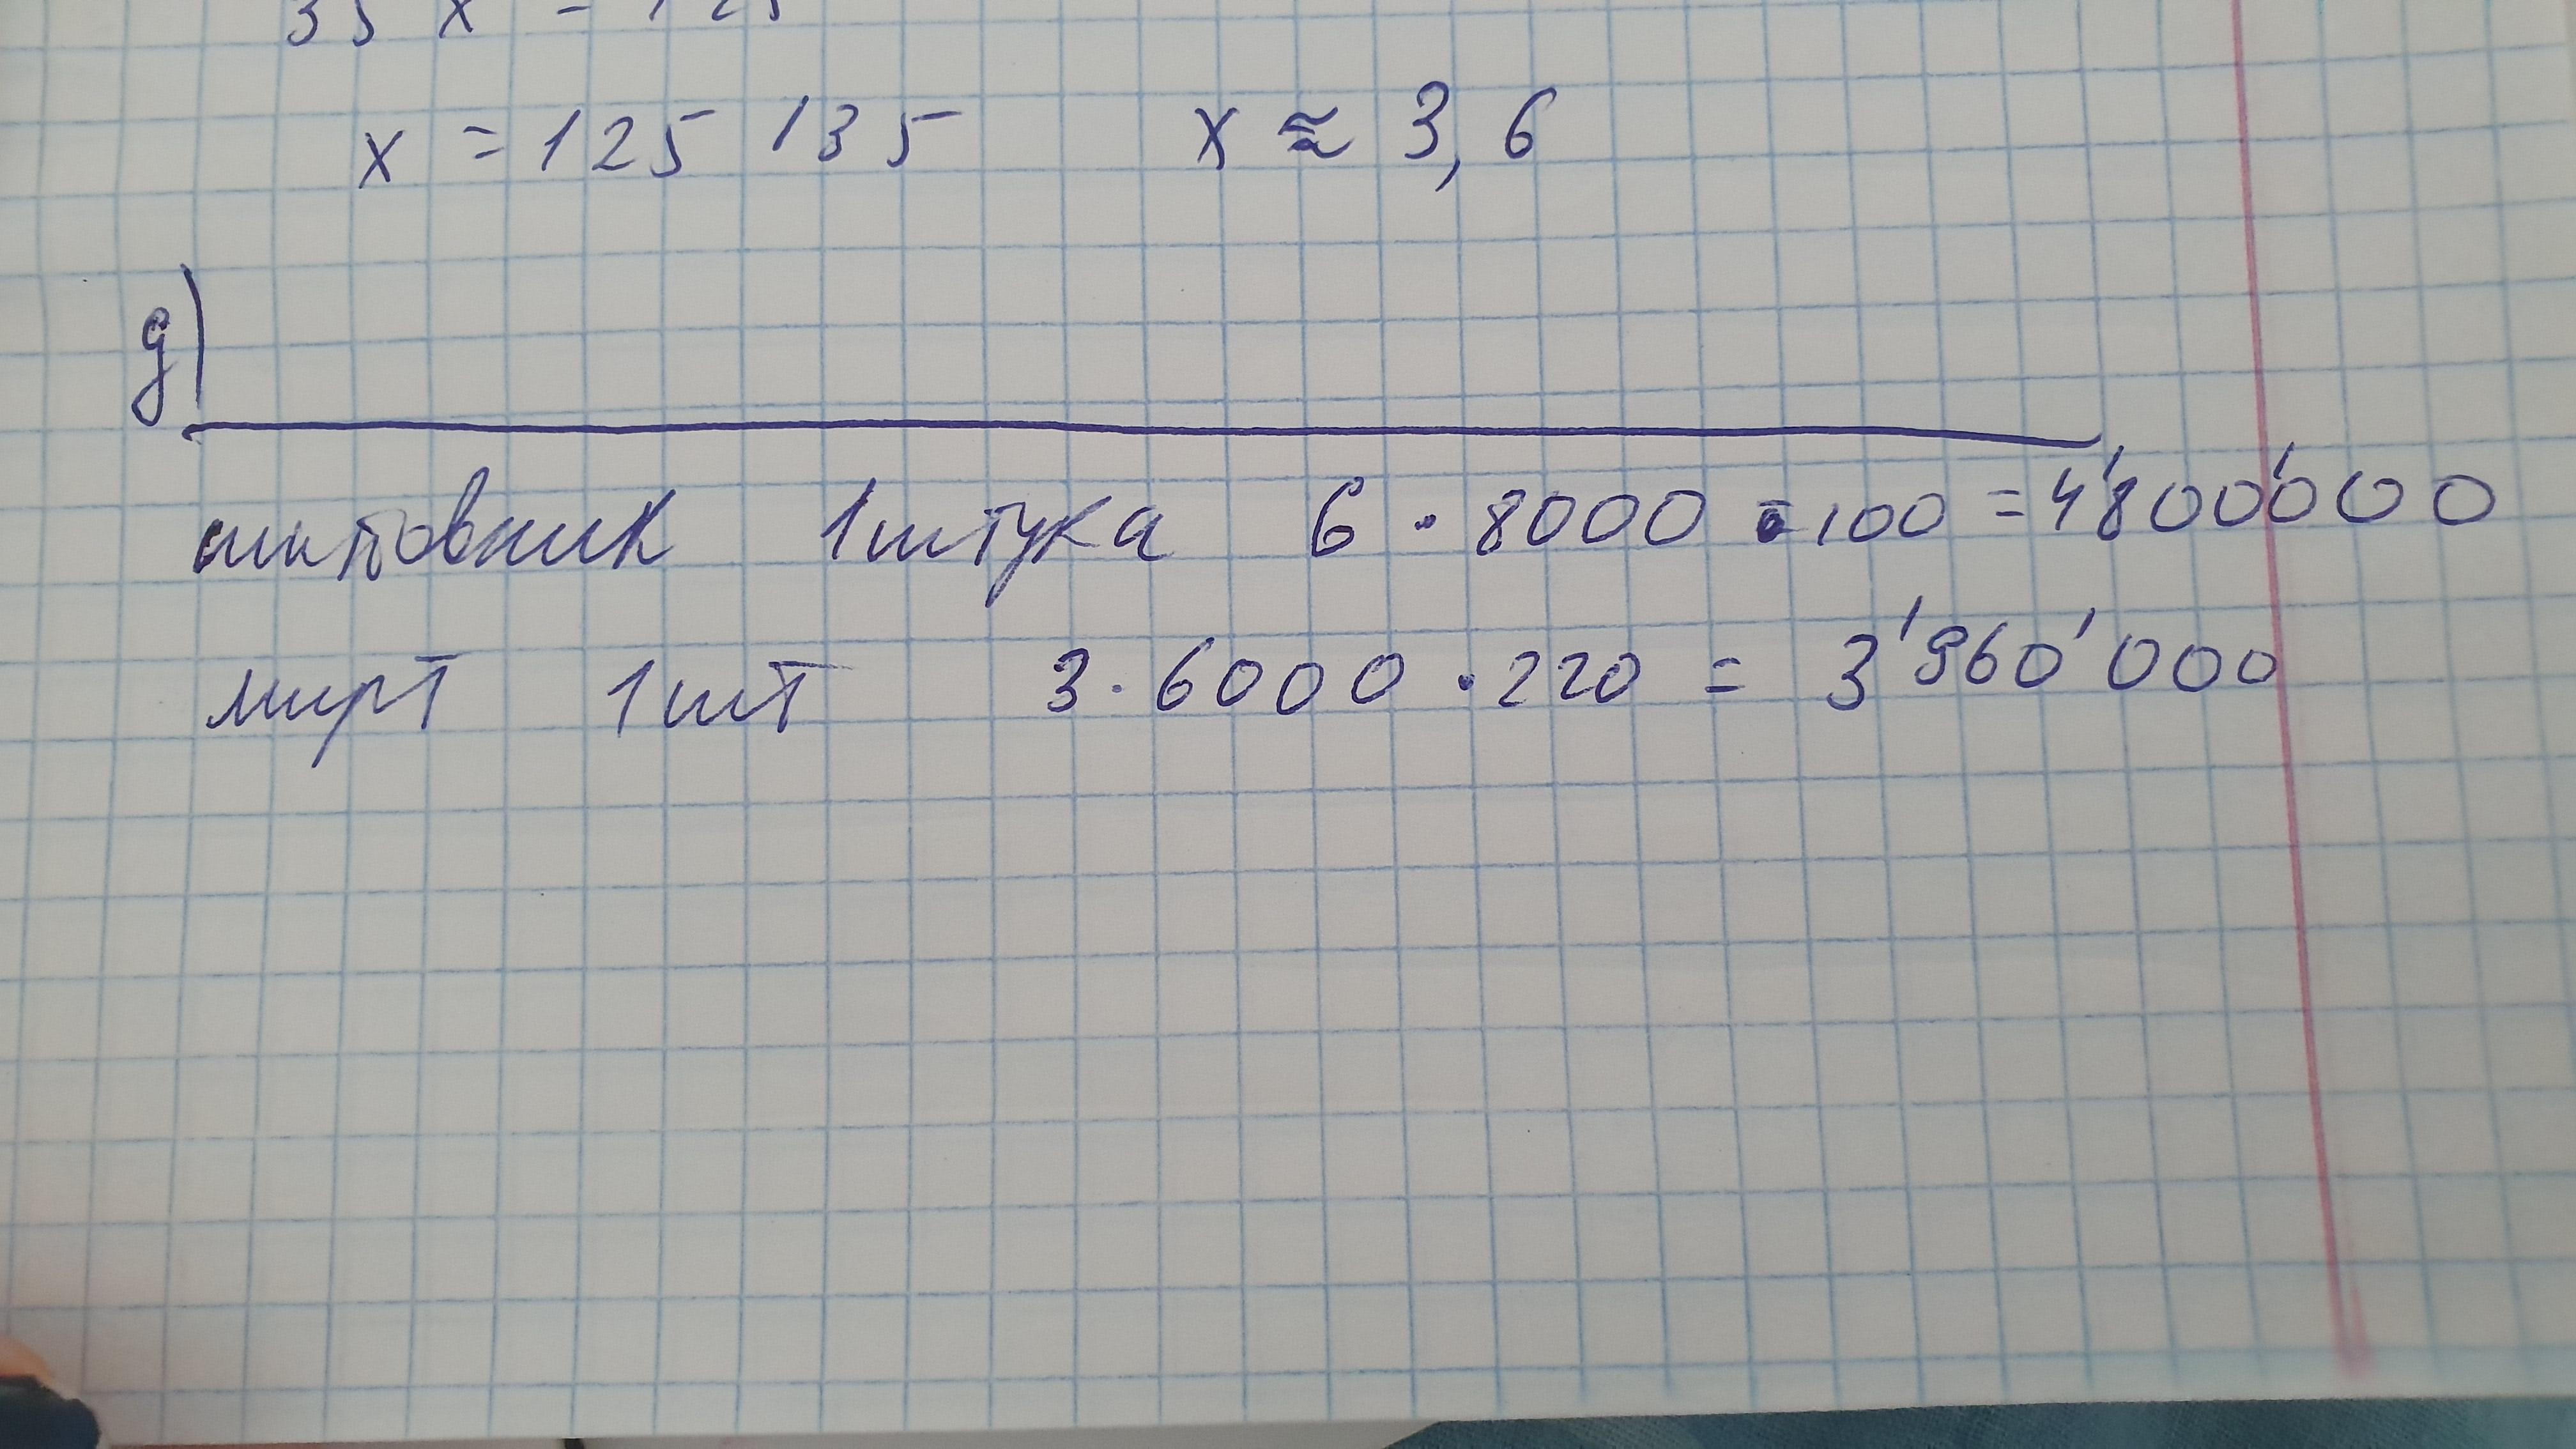 35 x = 125
x = 125 / 35 x ≈ 3,6
g)
шиповник 1 штука 6 · 8000 · 100 = 4'800'000
мирт 1 шт 3 · 6000 · 220 = 3'960'000